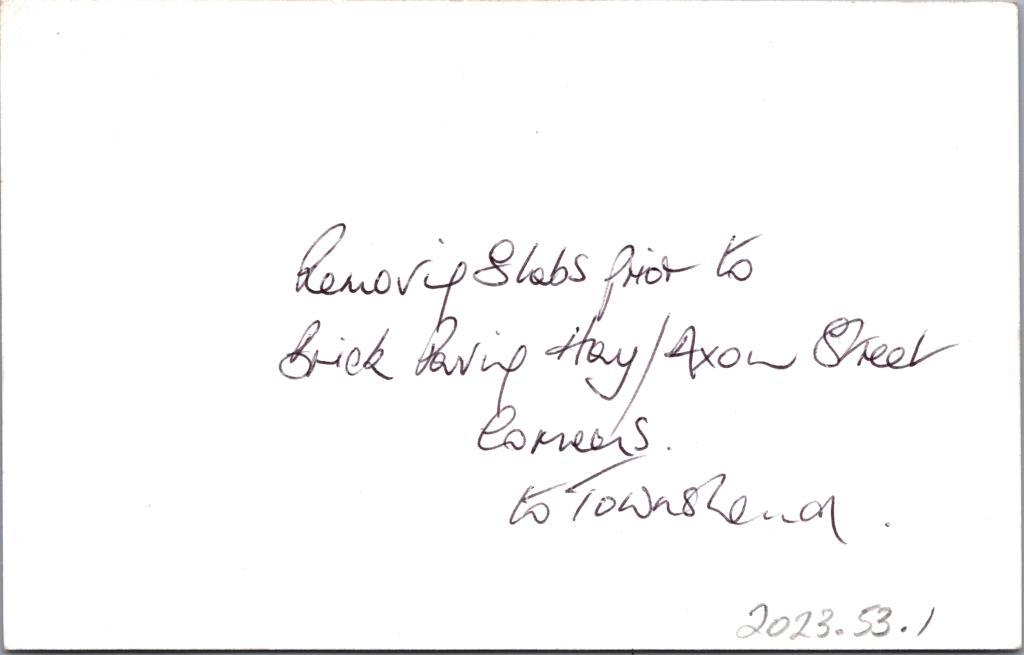 Removing Slabs prior to
Brick Paving Hay/Axon Street
Corners.
to Townshend.
2023.53.1